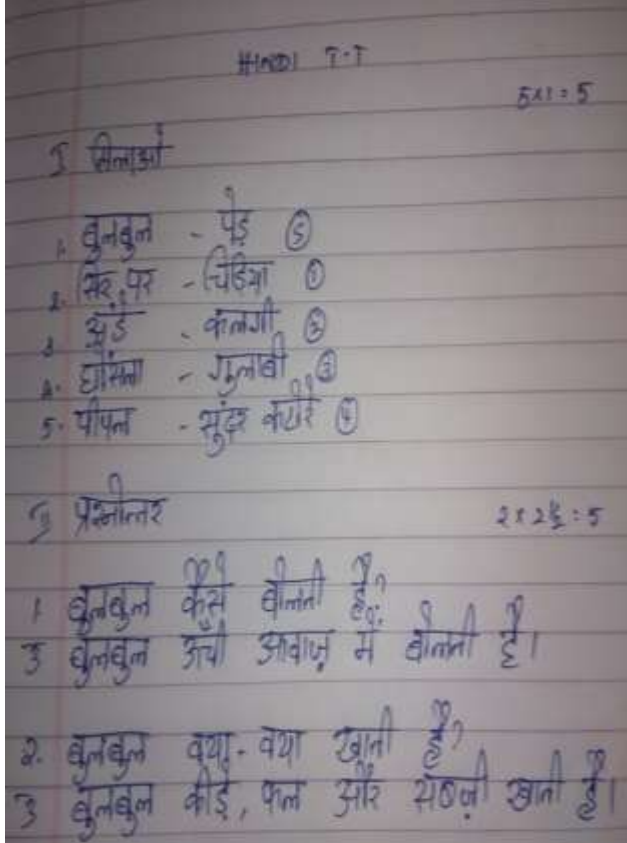 HINDI T.T
5x1=5
I मिलाओ
1. बुलबुल - पेड़ ⑤
2. सिर पर - चिड़िया ①
3 अंडे - कलगी ②
4. घोंसला - गुलाबी ③
5. पीपल - सुंदर कटोरे ④
II प्रश्नोत्तर 2x2½=5
1 बुलबुल कैसे बोलती है?
उ बुलबुल ऊँची आवाज़ में बोलती है।
2. बुलबुल क्या-क्या खाती है?
उ बुलबुल कीड़े, फल और सब्ज़ी खाती है।